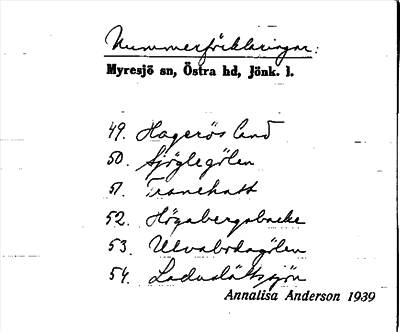 Nummerförklaringar:
Myresjö sn, Östra hd, Jönk. l.
49. Hagerös land
50. Sjöglegölen
51. Tranehatt
52. Högabergsbacke
53. Ulvabodagölen
54. Laduslättssjön
Annalisa Anderson 1939